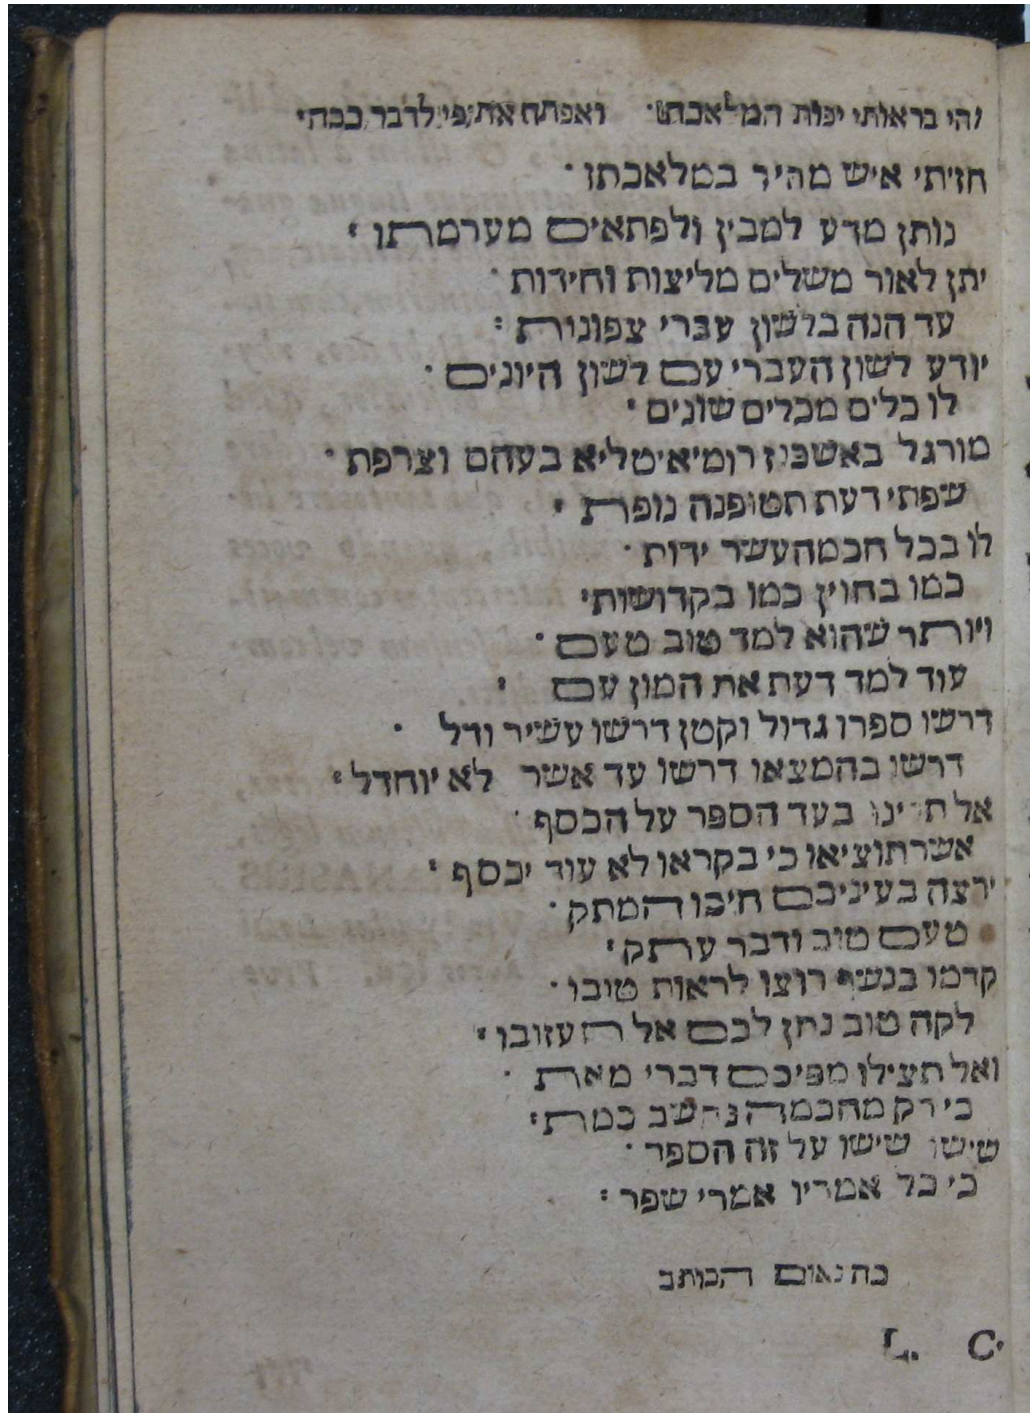 ויהי בראותי יפות המלאכה · ואפתח את פי לדבר ככה ׃
חזיתי איש מהיר במלאכתו ·
נותן מדע למבין ולפתאים מערמתו ׃
יתן לאור משלים מליצות וחידות ·
עד הנה בלשון עברי צפונות ׃
יודע לשון העברי עם לשון היונים ·
לו כלים מכלים שונים ׃
מורגל באשכנז רומי איטליא בעהם וצרפת ·
שפתי דעת תטופנה נופת ׃
לו בכל חכמה עשר ידות ·
כמו בחוץ כמו בקדושות ׃
ויותר שהוא למד טוב טעם ·
עוד למד דעת את המון עם ׃
דרשו ספרו גדול וקטן דרשו עשיר ודל ·
דרשו בהמצאו דרשו עד אשר לא יוחדל ׃
אל בעד הספר על הכסף ·
אשר תוציאו כי בקראו לא עוד יכסף ׃
ירצה בעיניכם חיכו המתק ·
טעם טוב ודבר עתק ׃
קדמו בנשף רוצו לראות טיבו ·
לקה טוב נתן לכם אל תעזובו ׃
ואל תצילו מפיכם דברי מאת ·
כי רק מחכמה נחשב כמת ׃
שישו שישו על זה הספר ·
כי כל אמריו אמרי שפר ׃
כה נאום הכותב
L. C.